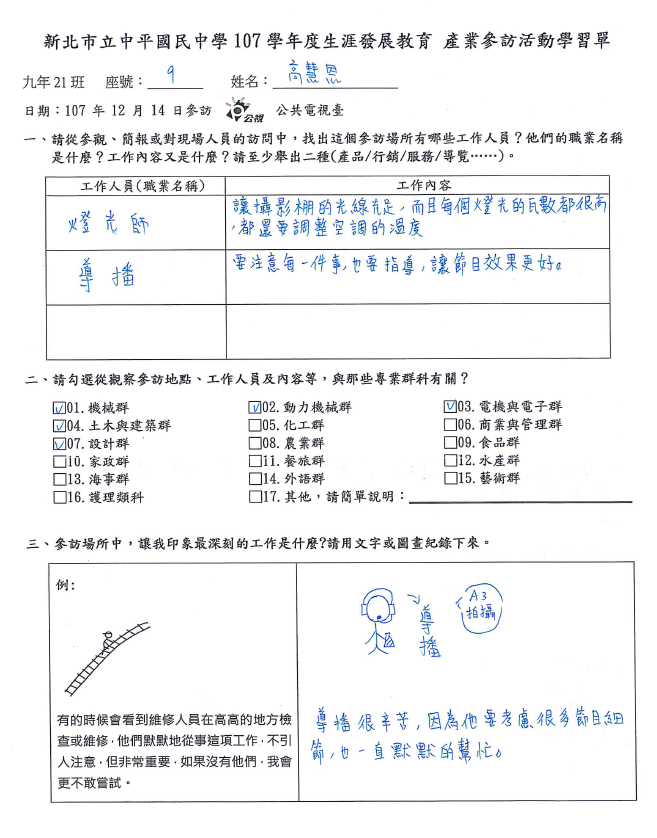 新北市立中平國民中學 107 學年度生涯發展教育 產業參訪活動學習單
九年 21 班 座號：9 姓名：高慧恩
日期：107 年 12 月 14 日參訪 公視 公共電視臺
一、請從參觀、簡報或對現場人員的訪問中，找出這個參訪場所有哪些工作人員？他們的職業名稱
是什麼？工作內容又是什麼？請至少舉出二種(產品/行銷/服務/導覽……)。
工作人員(職業名稱) 工作內容
燈光師 讓攝影棚的光線充足，而且每個燈光的瓦數都很高
，都還要調整空調的溫度
導播 要注意每一件事，也要指導，讓節目效果更好。
二、請勾選從觀察參訪地點、工作人員及內容等，與那些專業群科有關？
☑01.機械群 ☑02.動力機械群 ☑03.電機與電子群
☑04.土木與建築群 □05.化工群 □06.商業與管理群
☑07.設計群 □08.農業群 □09.食品群
□10.家政群 □11.餐旅群 □12.水產群
□13.海事群 □14.外語群 □15.藝術群
□16.護理類科 □17.其他，請簡單說明：
三、參訪場所中，讓我印象最深刻的工作是什麼?請用文字或圖畫紀錄下來。
例:
有的時候會看到維修人員在高高的地方檢
查或維修，他們默默地從事這項工作，不引
人注意，但非常重要，如果沒有他們，我會
更不敢嘗試。
導播
A3
拍攝
導播很辛苦，因為他要考慮很多節目細
節，也一直默默的幫忙。